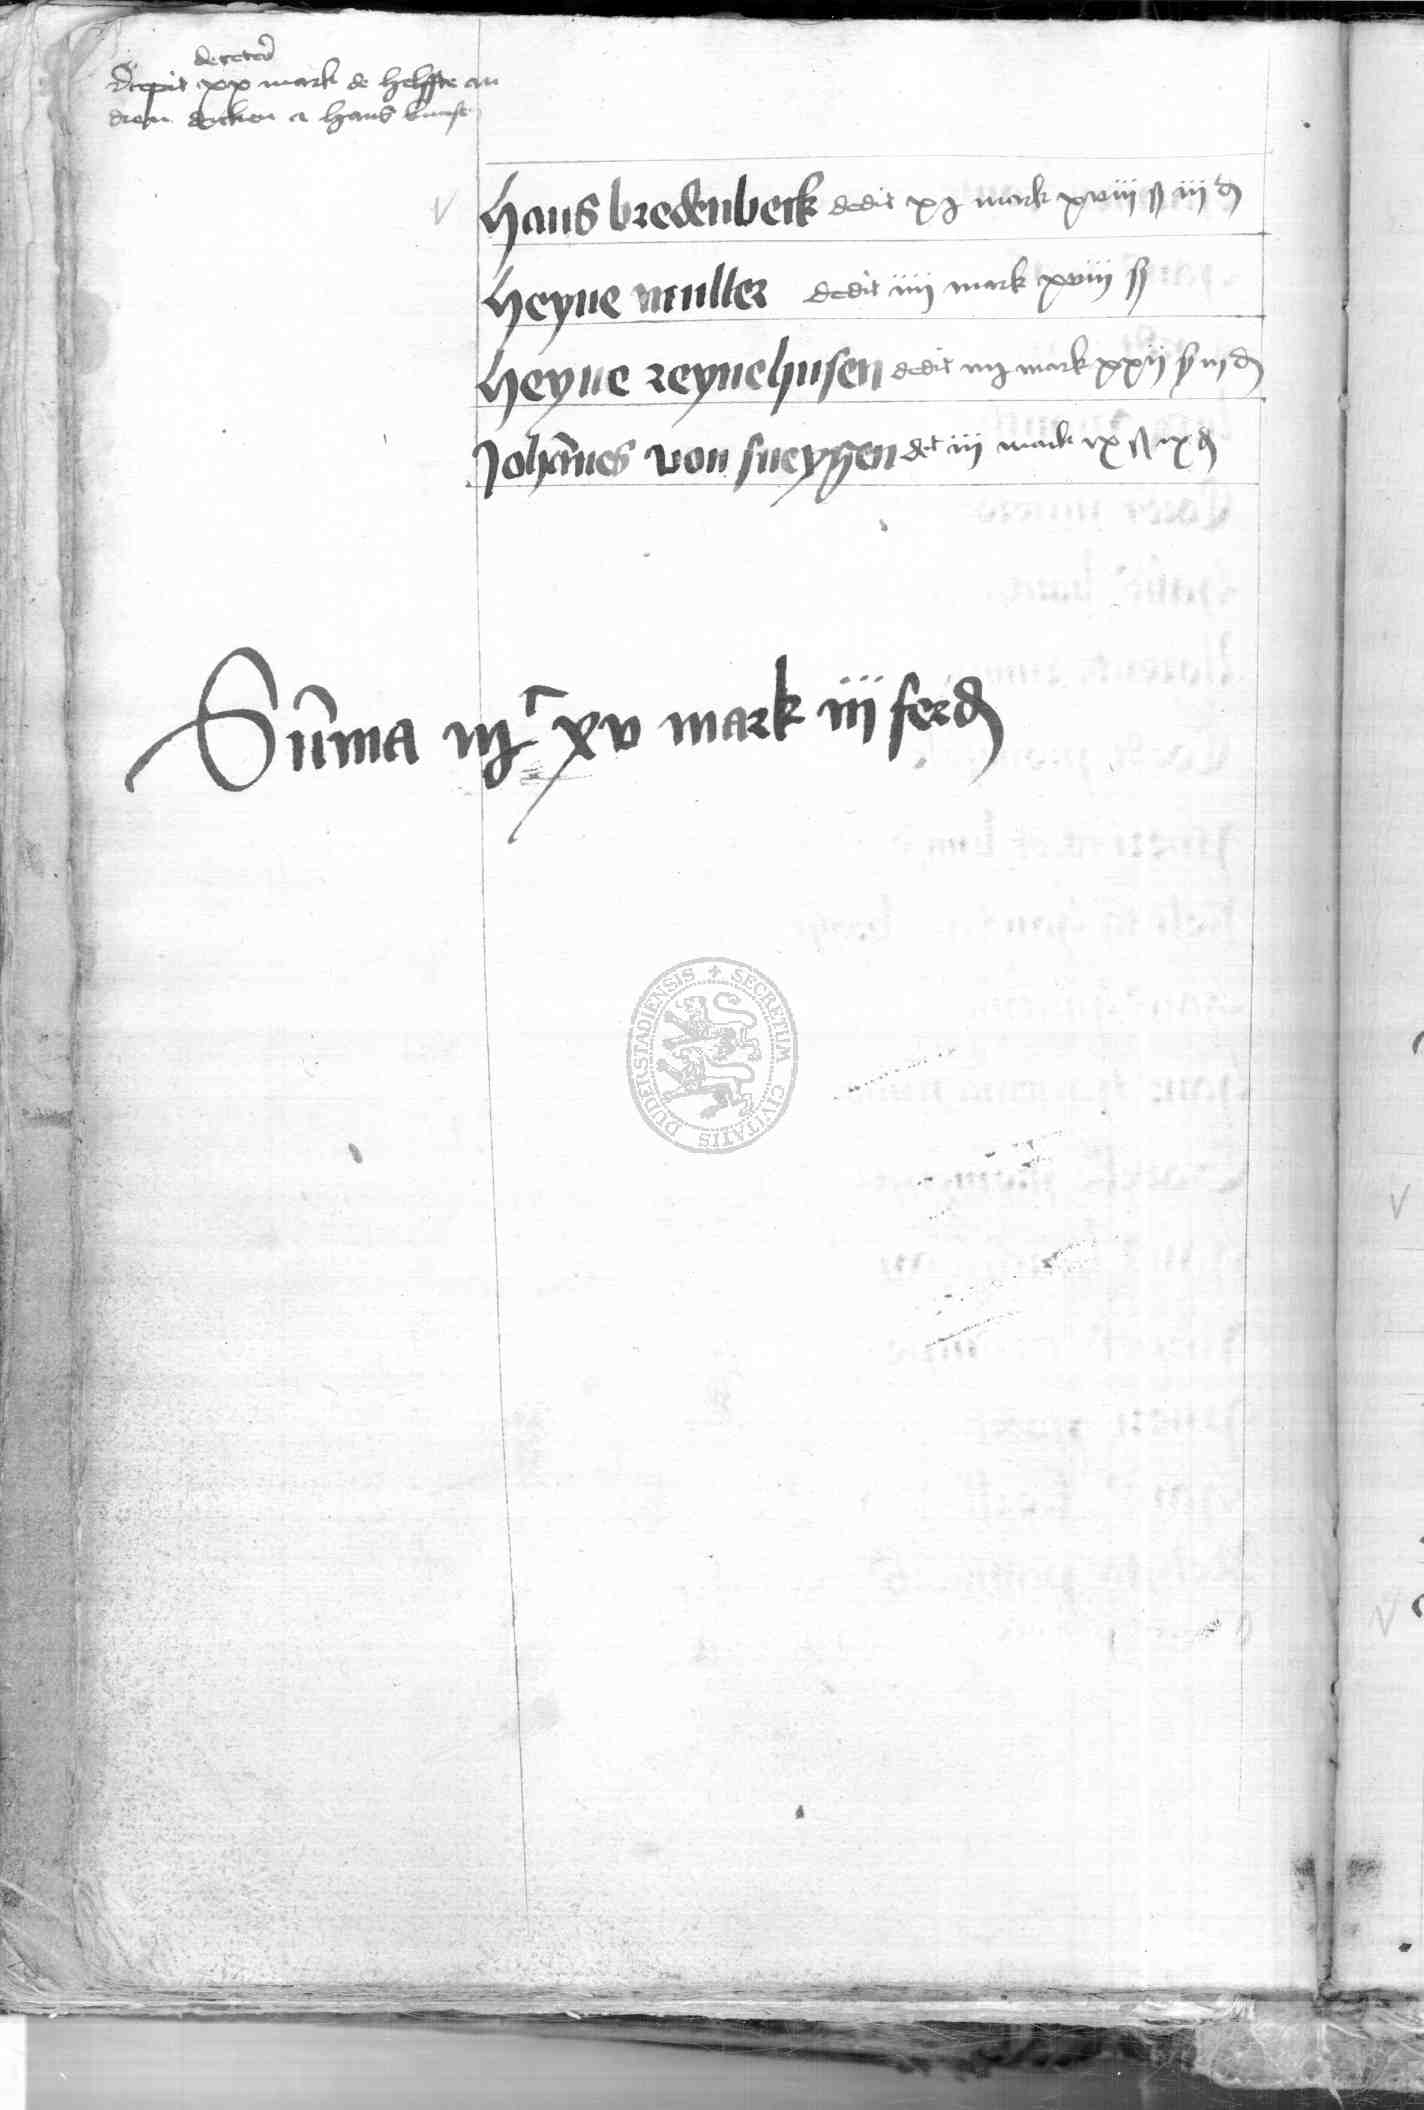 decetero
Recepit xx mark de helffte an
hans
hans bredenbeck dedit xj mark xviii ß iii d
heyne muller dedit iiij mark xviij ß
heyne reynehusen dedit iiij mark xxij ß iij d
Johannes von sneygen det iii mark ix ß ix d
Summa xv mark iii ferd
SECRETUM CIVITATIS DUDERSTADIENSIS